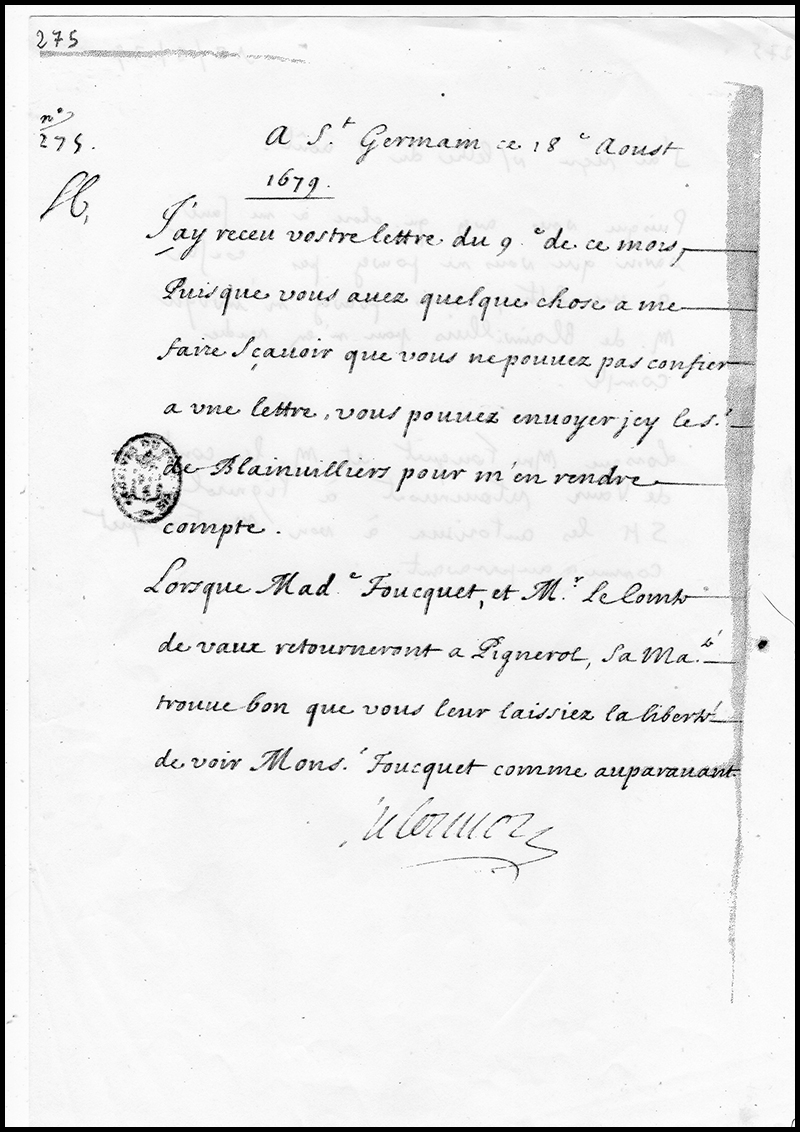 275
n.º
275.
A S.t Germain ce 18.e Aoust
1679.
J'ay receu vostre lettre du 9.e de ce mois,
Puisque vous auez quelque chose a me
faire Sçauoir que vous ne pouuez pas confier
a vne lettre, vous pouuez enuoyer jcy le s.r
de Blainvilliers pour m'en rendre
compte.
Lorsque Mad.e Foucquet, et M.r le Comte
de vaux retourneront a Pignerol, Sa Ma.té
trouue bon que vous leur laissiez la liberté
de voir Mons.r Foucquet comme auparauant